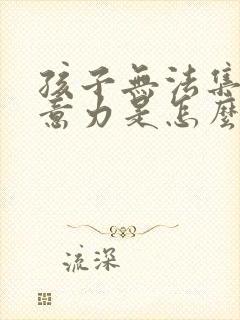 孩子無法集
意力是怎麼
流深